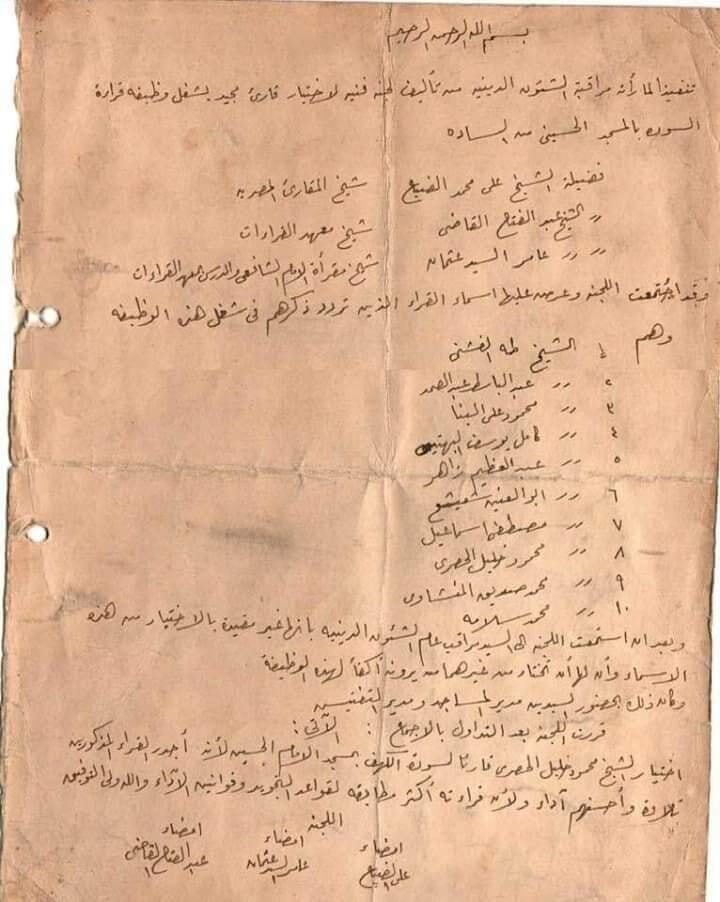 بسم الله الرحمن الرحيم
تنفيذا لما رأته مراقبة الشئون الدينيه من تأليف لجنة فنيه لاختيار قارئ مجيد يشغل وظيفه قراءة
السوره بالمسجد الحسيني من الساده
فضيلة الشيخ على محمد الضباع شيخ المقارئ المصريه
〃 الشيخ عبد الفتاح القاضى شيخ معهد القراءات
〃 〃 عامر السيد عثمان شيخ مقرأة الإمام الشافعى والمدرس بمعهد القراءات
وقد اجتمعت اللجنه وعرض عليها اسماء القراء الذين تردد ذكرهم فى شغل هذه الوظيفه
وهم ١ الشيخ طه الفشنى
٢ 〃 عبد الباسط عبد الصمد
٣ 〃 محمود على البنا
٤ 〃 كامل يوسف البهتيمى
٥ 〃 عبد العظيم زاهر
٦ 〃 ابو العنين شعيشع
٧ 〃 مصطفى اسماعيل
٨ 〃 محمود خليل الحصرى
٩ 〃 محمد صديق المنشاوى
١٠ 〃 محمد سلامه
وبعد ان استمعت اللجنة الى السيد مراقب عام الشئون الدينيه بانها غير مقيدة بالاختيار من هذه
الاسماء وأن لها أن تختار من غيرهما من يرونه أكفأ لهذه الوظيفة
وكان ذلك بحضور السيدين مدير المساجد ومدير التفتيش
قررت اللجنة بعد التداول بالاجماع : الآتى :
اختيار الشيخ محمود خليل الحصرى قارئا لسورة الكهف بمسجد الامام الحسين لأنه أجدر القراء المذكورين
تلاوة وأحسنهم آداء ولأن قراءته أكثر مطابقه لقواعد التجويد وقوانين الآداء والله ولى التوفيق
اللجنه
امضاء امضاء امضاء
على الضباع عامر السيد عثمان عبد الفتاح القاضى